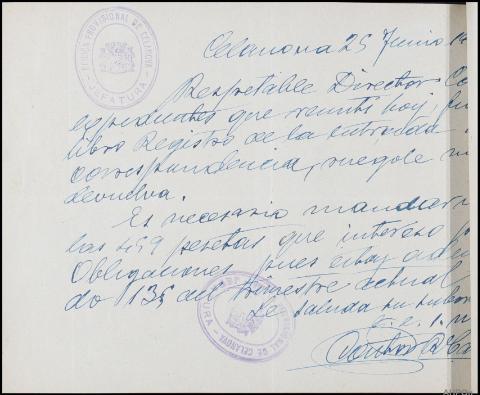 PRISION PROVISIONAL DE CELANOVA
JEFATURA
Celanova 25 Junio
Respetable Director Co
expedientes que remito hoy,
libro Registro de la entrada
correspondencia, ruegole
devuelva.
Es necesario mandar
las 459 pesetas que intereso
Obligaciones pues estoy
do 135 del trimestre actual
Le saluda su subor